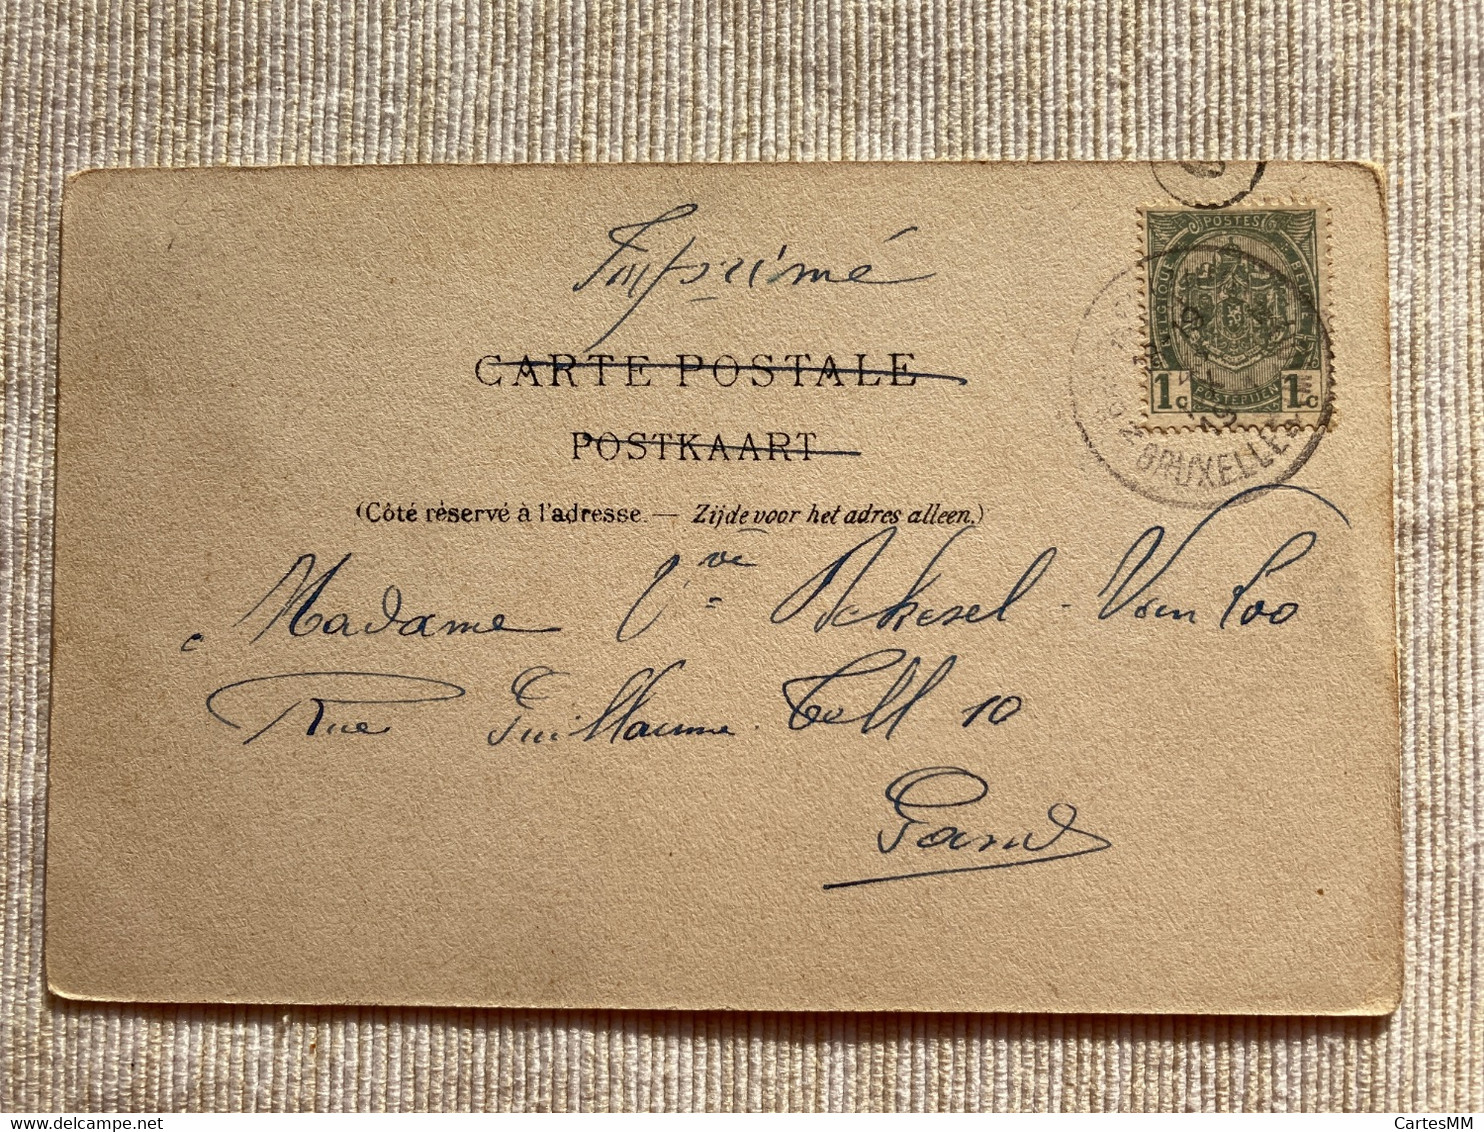 Imprimé
POSTES
CARTE POSTALE
1c 1c
POSTERIJEN
POSTKAART
BRUXELLES
(Côté réservé à l'adresse. — Zijde voor het adres alleen.)
Madame Vve - Van Loo
Rue Guillaume Tell 10
Gand
CartesMM